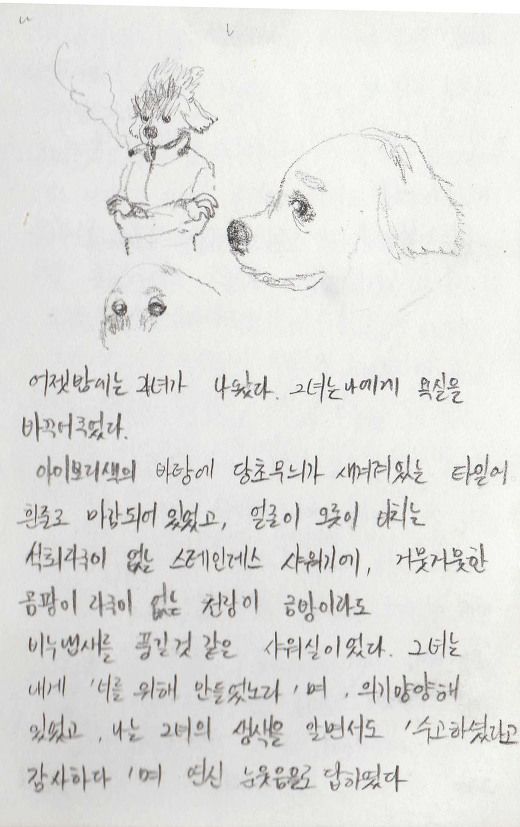 어젯밤에는 그녀가 나왔다. 그녀는 나에게 욕실을
바꾸어주었다.
아이보리색의 바탕에 당초무늬가 새겨져있는 타일이
흰줄로 마감되어 있었고, 얼굴이 오롯이 비치는
석회자국이 없는 스테인레스 샤워기에, 거뭇거뭇한
곰팡이 자국이 없는 천장이 금방이라도
비누냄새를 풍길것 같은 샤워실이었다. 그녀는
내게 '너를 위해 만들었노라'며, 의기양양해
있었고, 나는 그녀의 생색을 알면서도 '수고하셨다고
감사하다'며 연신 눈웃음으로 답하였다